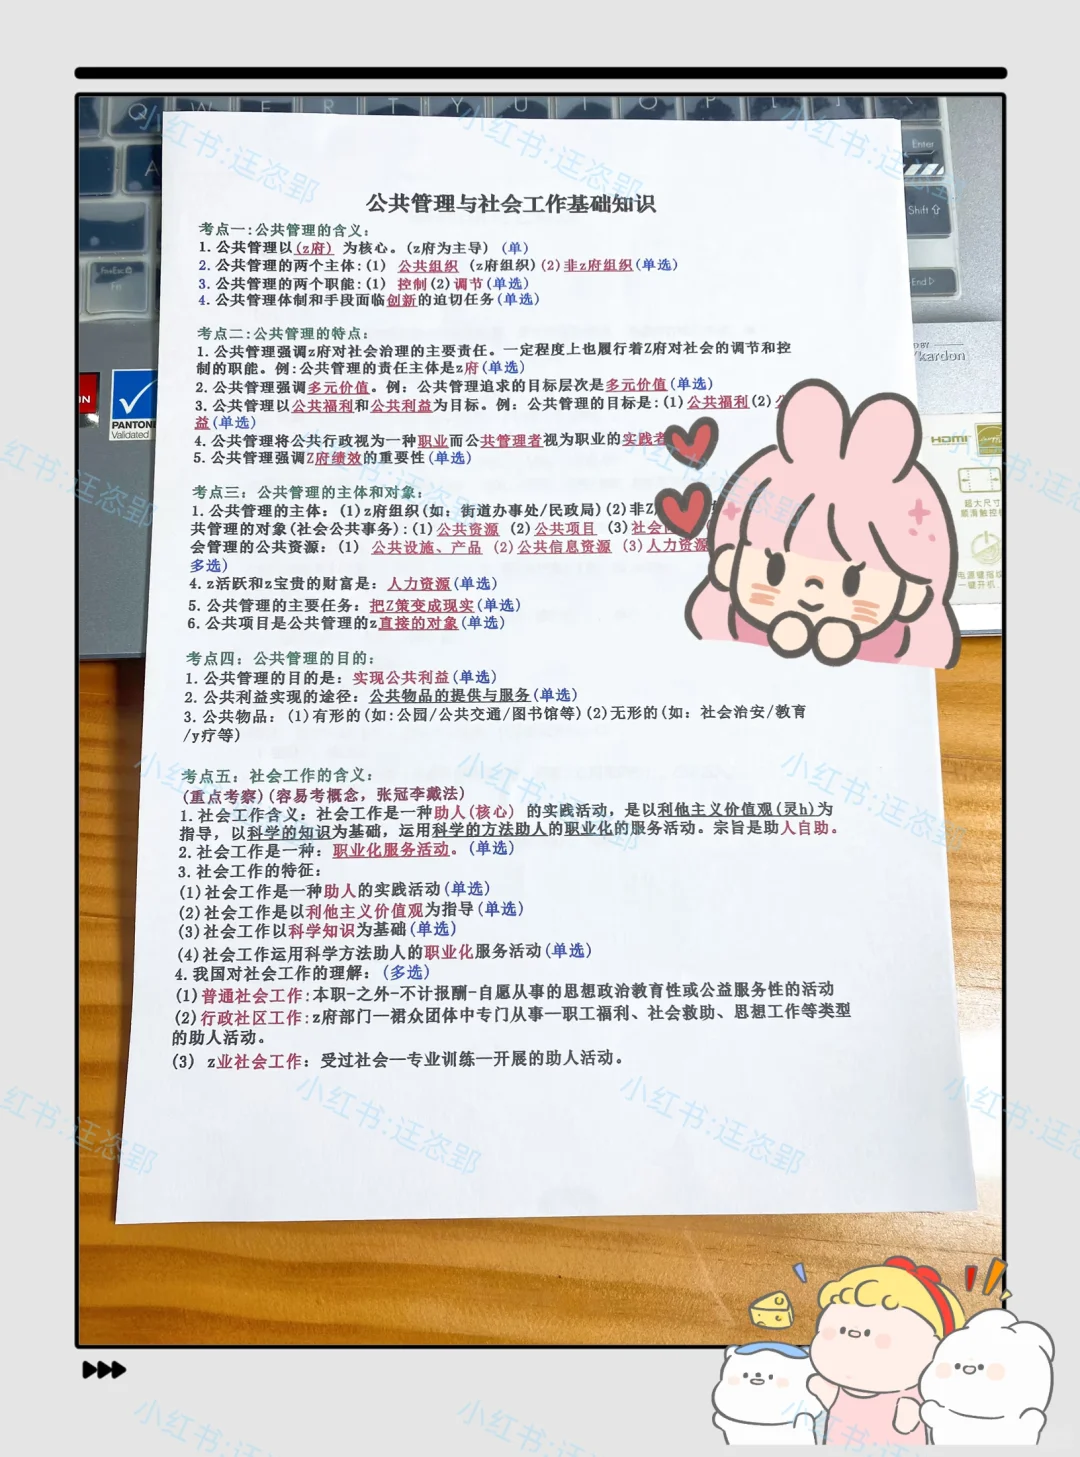 公共管理与社会工作基础知识
考点一:公共管理的含义:
1. 公共管理以(z府) 为核心。(z府为主导) (单)
2. 公共管理的两个主体:(1) 公共组织 (z府组织)(2)非z府组织(单选)
3. 公共管理的两个职能:(1) 控制(2)调节(单选)
4. 公共管理体制和手段面临创新的迫切任务(单选)
考点二:公共管理的特点:
1. 公共管理强调z府对社会治理的主要责任。一定程度上也履行着Z府对社会的调节和控
制的职能。例:公共管理的责任主体是z府(单选)
2. 公共管理强调多元价值。例: 公共管理追求的目标层次是多元价值(单选)
3. 公共管理以公共福利和公共利益为目标。例: 公共管理的目标是:(1)公共福利(2)
益(单选)
4. 公共管理将公共行政视为一种职业而公共管理者视为职业的实践者
5. 公共管理强调Z府绩效的重要性(单选)
考点三: 公共管理的主体和对象:
1. 公共管理的主体: (1)z府组织(如: 街道办事处/民政局)(2)非Z
共管理的对象(社会公共事务):(1)公共资源 (2)公共项目 (3)社会
会管理的公共资源: (1) 公共设施、产品 (2)公共信息资源 (3)人力资源
多选)
4. z活跃和z宝贵的财富是: 人力资源(单选)
5. 公共管理的主要任务: 把Z策变成现实(单选)
6. 公共项目是公共管理的z直接的对象(单选)
考点四: 公共管理的目的:
1. 公共管理的目的是: 实现公共利益(单选)
2. 公共利益实现的途径: 公共物品的提供与服务(单选)
3. 公共物品: (1)有形的(如:公园/公共交通/图书馆等)(2)无形的(如: 社会治安/教育
/y疗等)
考点五: 社会工作的含义:
(重点考察)(容易考概念, 张冠李戴法)
1. 社会工作含义: 社会工作是一种助人(核心) 的实践活动, 是以利他主义价值观(灵h)为
指导, 以科学的知识为基础, 运用科学的方法助人的职业化的服务活动。宗旨是助人自助。
2. 社会工作是一种: 职业化服务活动。(单选)
3. 社会工作的特征:
(1)社会工作是一种助人的实践活动(单选)
(2)社会工作是以利他主义价值观为指导(单选)
(3)社会工作以科学知识为基础(单选)
(4)社会工作运用科学方法助人的职业化服务活动(单选)
4. 我国对社会工作的理解: (多选)
(1)普通社会工作:本职-之外-不计报酬-自愿从事的思想政治教育性或公益服务性的活动
(2)行政社区工作:z府部门—裙众团体中专门从事—职工福利、社会救助、思想工作等类型
的助人活动。
(3) z业社会工作: 受过社会—专业训练—开展的助人活动。
小红书:迋恣郢
Enter
Shift
End
FnEsc
Fn
PANTONE
Validated
kardon
HDMI